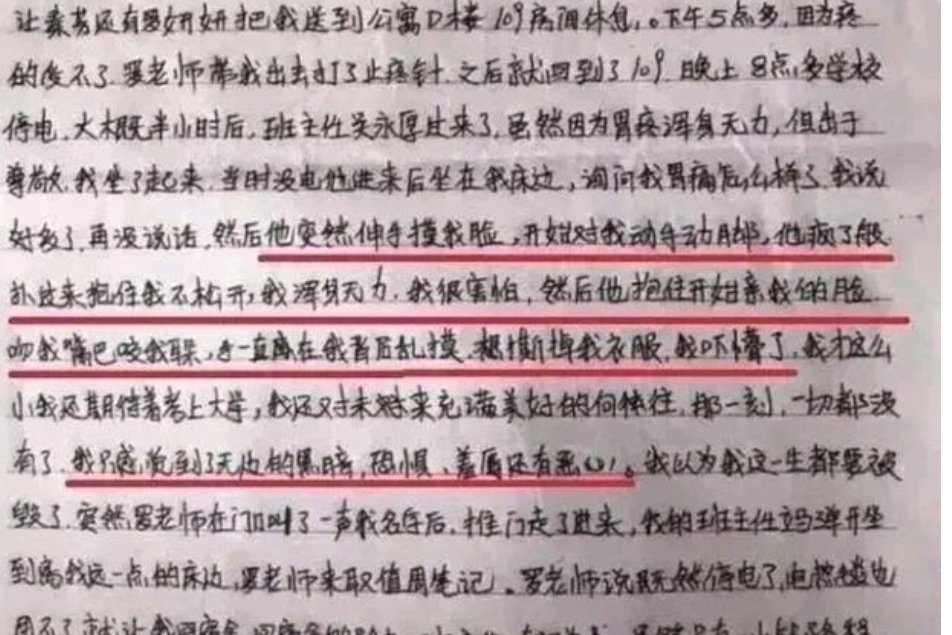 让蔡芳还有罗妍妍把我送到公寓D楼109房间休息,。下午5点多,因为疼
的受不了.罗老师带我出去打了止疼针.之后就回到了109.晚上8点多学校
停电.大概半小时后,班主任吴永厚过来了.虽然因为胃疼浑身无力,但出于
尊敬.我坐了起来.当时没电他进来后坐在我床边,询问我胃痛怎么样了.我说
好多了.再没说话.然后他突然伸手摸我脸,开始对我动手动脚,他疯了般
扑过来抱住我不松开,我浑身无力.我很害怕,然后他抱住开始亲我的脸.
吻我嘴巴咬我耳朵,手一直在我背后乱摸.想撕掉我衣服.我吓懵了.我才这么
小我还期待着考上大学,我还对未来充满美好的向往,那一刻,一切都没
有了.我只感觉到了无边的黑暗,恐惧、羞辱还有恶心。我以为我这一生都要被
毁了.突然罗老师在门口叫了一声我名字后,推门走了进来,我的班主任立马弹开坐
到离我远一点的床边,罗老师来取值周笔记。罗老师说既然停电了,电热毯也
用不了就让我回宿舍